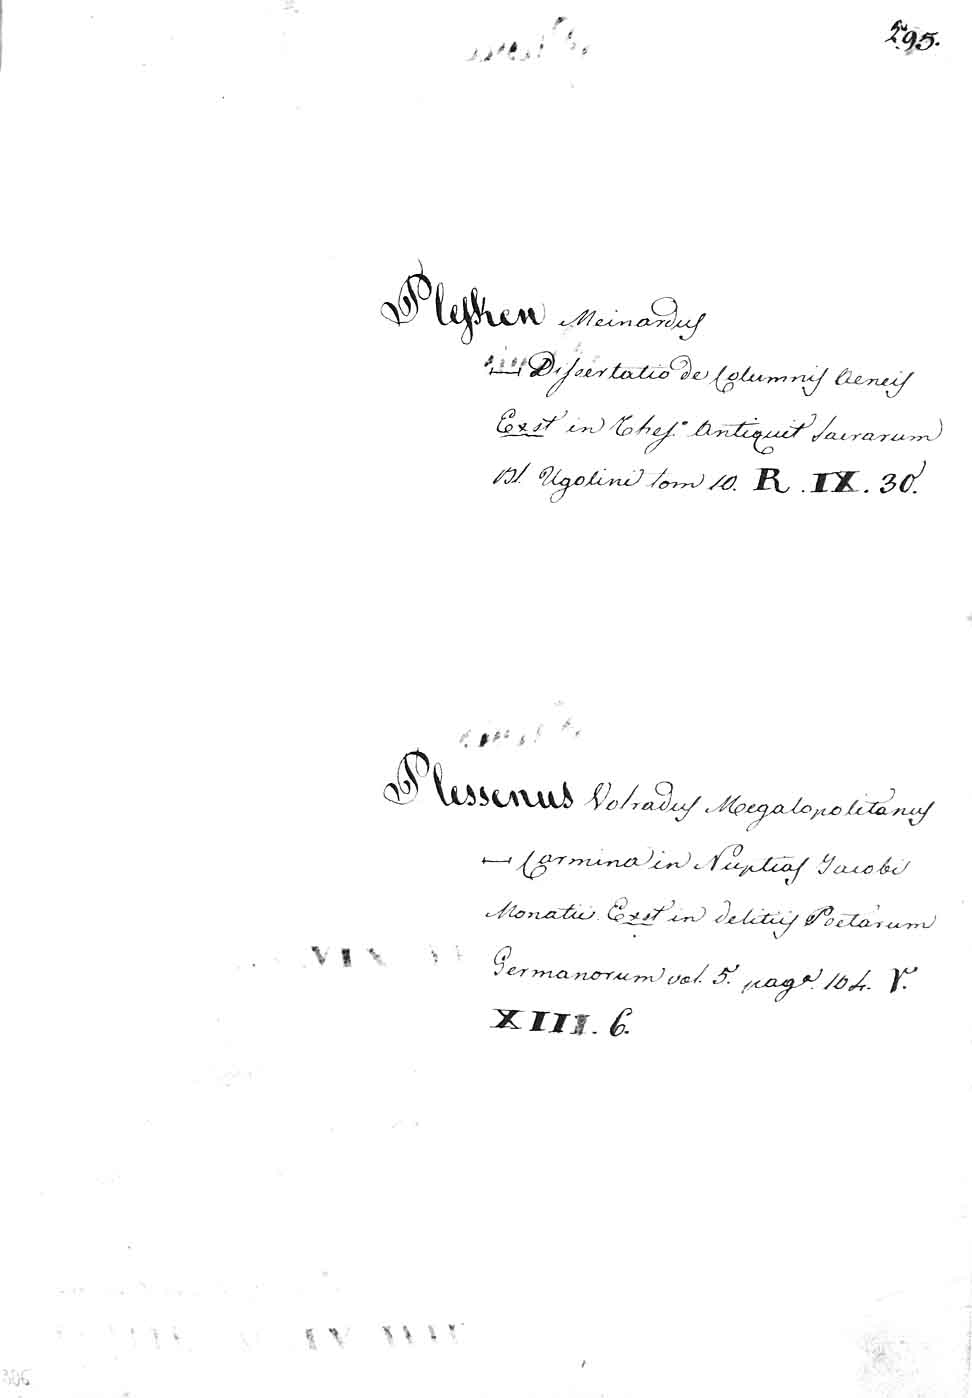 295.
Plesken Meinardus
— Dissertatio de Columnis Aeneis
Exst in Thes: Antiquit Sacrarum
Bl. Ugolini tom 10. R. IX. 30.
Plessenus Volradus Megalopolitanus
— Carmina in Nuptias Jacobi
Monatii Exst in delitiis Poetarum
Germanorum vol. 5. pag. 104. V.
XIII. 6.